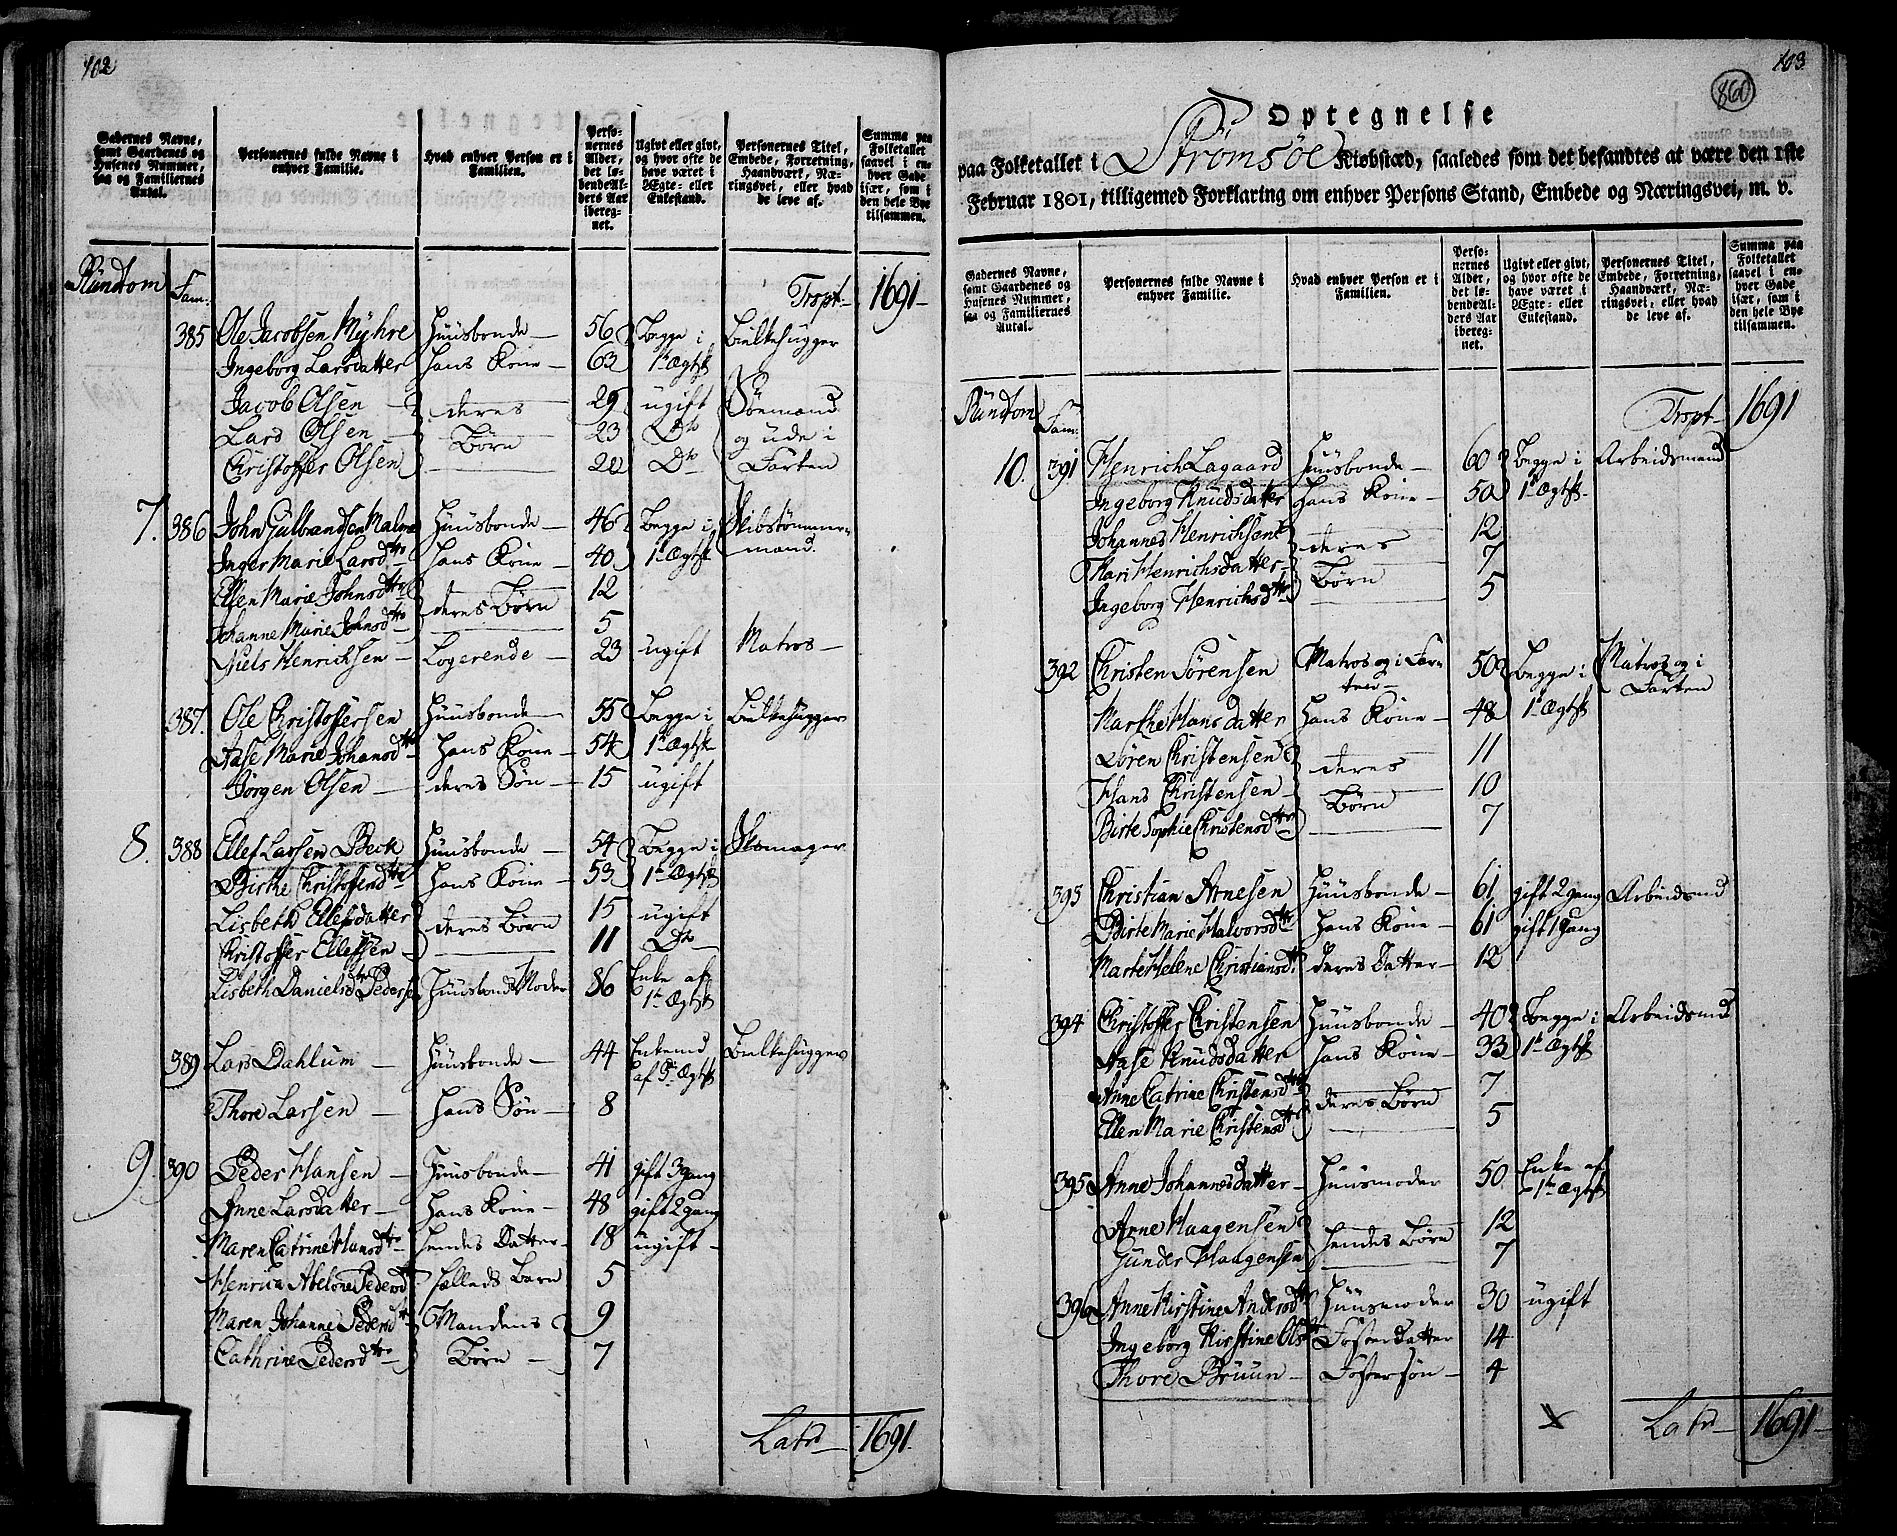 102
Gadernes Navne, samt Gaardenes og Husenes Nummer, saa og Familiernes Antal.
Personernes fulde Navne i enhver Familie.
Hvad enhver Person er i Familien.
Personernes Alder, det løbende Alders Aar iberegnet.
Ugivt eller givt, og hvor ofte de have været i Ægte- eller Enkestand.
Personernes Titel, Embede, Forretning, Haandværk, Næringsvei, eller hvad de leve af.
Summa paa Folketallet saavel i enhver Gade især, som i den hele Bye tilsammen.
Rundtom Fam: Trspt 1691
385 Ole Jacobsen Myhre Huusbonde 56 Begge i Bulkehugger
Ingeborg Larsdatter Hans Kone 63 1te Ægtsk
Jacob Olsen deres 29 ugift Søemand
Lars Olsen Børn 23 Do og ude i
Christoffer Olsen 20 Do Farten
7. 386 John Gulbrandsen Malm Huusbonde 46 Begge i Skibstømmer-
Inger Marie Larsdtr Hans Kone 40 1te Ægtsk mand.
Ellen Marie Johnsdtr deres Børn 12
Johanne Marie Johnsdtr 5
Niels Henrichsen Logerende 23 ugift Matros
387. Ole Christoffersen Huusbonde 55 Begge i Bulkehugger
Aase Marie Johansdtr Hans Kone 54 1te Ægtsk
Jørgen Olsen deres Søn 15 ugift
8. 388 Ellef Larsen Beck Huusbonde 54 Begge i Skomager
Birthe Christoffersdtr Hans Kone 53 1te Ægtsk
Lisbeth Ellefsdatter deres Børn 15 ugift
Christoffer Ellefsen 11 Do
Lisbeth Danielsdtr Pederse Huusbonds Moder 86 Enke af
1te Ægtsk
389 Lars Dahlum Huusbonde 44 Enkemd Bulkehugger
af 3die Ægtsk
Thore Larsen Hans Søn 8
9. 390 Peder Hansen Huusbonde 41 gift 3 gang
Anne Larsdatter Hans Kone 48 gift 2 gang
Maren Catrine Hansdtr hendes Datter 18 ugift
Henrica Abelone Pedersdtr Fælleds Barn 5
Maren Johanne Pedersdtr Mandens 9
Cathrine Pedersdtr Børn 7
Latr 1691
103
860
Optegnelse
paa Folketallet i Strømsøe Kiøbstæd, saaledes som det befandtes at være den 1ste
Februar 1801, tilligemed Forklaring om enhver Persons Stand, Embede og Næringsvei, m. v.
Gadernes Navne, samt Gaardenes og Husenes Nummer, saa og Familiernes Antal.
Personernes fulde Navne i enhver Familie.
Hvad enhver Person er i Familien.
Personernes Alder, det løbende Alders Aar iberegnet.
Ugivt eller givt, og hvor ofte de have været i Ægte- eller Enkestand.
Personernes Titel, Embede, Forretning, Haandværk, Næringsvei, eller hvad de leve af.
Summa paa Folketallet saavel i enhver Gade især, som i den hele Bye tilsammen.
Rundtom Fam: Trspt 1691
10. 391 Henrich Lagaard Huusbonde 60 Begge i Arbeidsmand
Ingeborg Knudsdatter Hans Kone 50 1te Ægtsk
Johannes Henrichsen deres 12
Mari Henrichsdatter Børn 7
Ingeborg Henrichsdtr 5
392 Christen Sørensen Matros og i Far- 50 Begge i Matros og i
ten 1te Ægtsk Farten
Marthe Hansdatter Hans Kone 48
Søren Christensen deres 11
Hans Christensen Børn 10
Birte Sophie Christensdtr 7
393 Christian Arnesen Huusbonde 61 gift 2 gang Arbeidsmd
Birte Marie Halvorsdtr Hans Kone 61 gift 1 gang
Marte Helene Christiansdtr deres Datter 12
394 Christoffer Christensen Huusbonde 40 Begge i Arbeidsmd
Aase Knudsdatter Hans Kone 33 1te Ægtsk
Anne Catrine Christensdtr deres Børn 7
Ellen Marie Christensdtr 5
395 Anne Johannesdatter Huusmoder 50 Enke af
1te Ægtsk
Arne Haagensen hendes Børn 12
Gunder Haagensen 7
396 Anne Kirstine Andersdtr Huusmoder 30 ugift
Ingeborg Kirstine Olsdtr Fosterdatter 14
Thore Bruun Fostersøn 4
Latr 1691